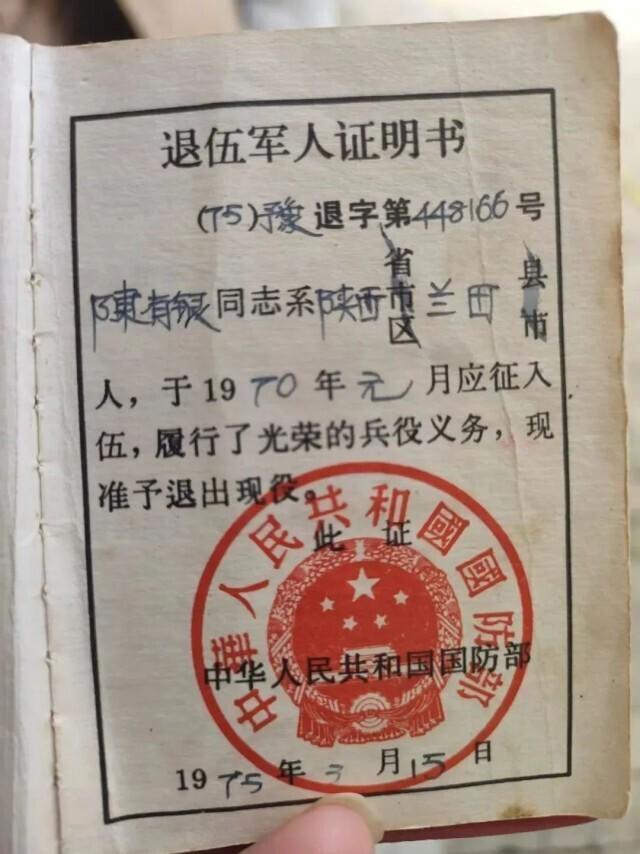 退伍军人证明书
(75)豫退字第448166号
陳有銀同志系陕西省市区兰田县市
人，于1970年元月应征入
伍，履行了光荣的兵役义务，现
准予退出现役。
此证
中華人民共和國國防部
中华人民共和国国防部
1975年3月15日